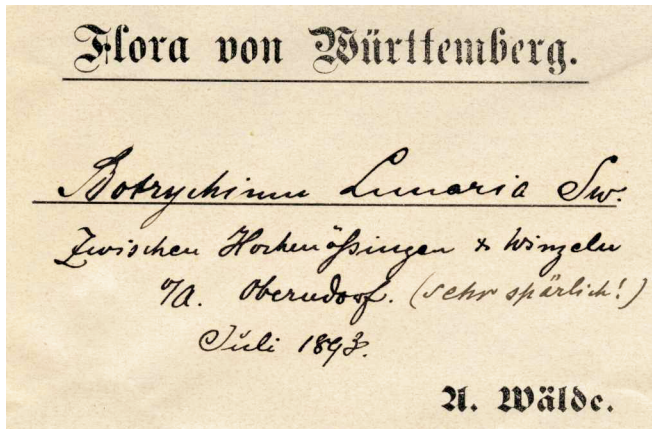 Flora von Württemberg.
Botrychium Lunaria Sw.
Zwischen Hochmössingen & Winzeln
O/A. Oberndorf. (sehr spärlich!)
Juli 1893.
A. Wälde.